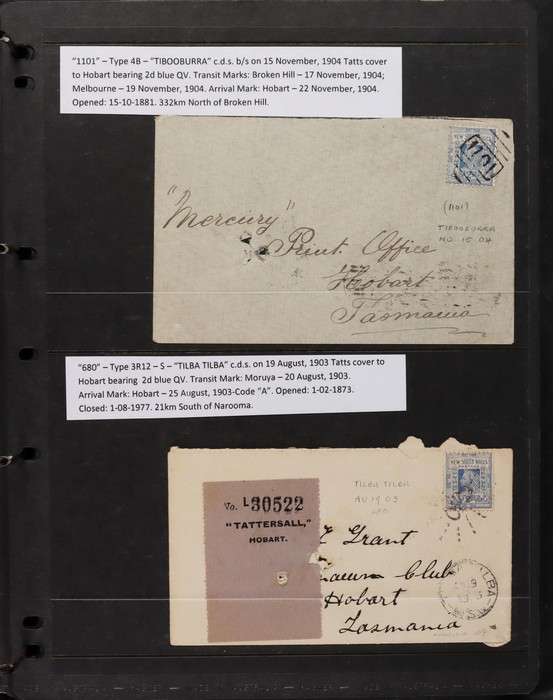 "1101" – Type 4B – "TIBOOBURRA" c.d.s. b/s on 15 November, 1904 Tatts cover
to Hobart bearing 2d blue QV. Transit Marks: Broken Hill – 17 November, 1904;
Melbourne – 19 November, 1904. Arrival Mark: Hobart – 22 November, 1904.
Opened: 15-10-1881. 332km North of Broken Hill.
1101
(1101)
TIBOOBURRA
NO 15 04
"Mercury"
Print. Office
Hobart
Tasmania
"680" – Type 3R12 – S – "TILBA TILBA" c.d.s. on 19 August, 1903 Tatts cover to
Hobart bearing  2d blue QV. Transit Mark: Moruya – 20 August, 1903.
Arrival Mark: Hobart – 25 August, 1903-Code "A". Opened: 1-02-1873.
Closed: 1-08-1977. 21km South of Narooma.
TILBA TILBA
AU 19 03
680
No. L30522
"TATTERSALL,"
HOBART.
Grant
Club
Hobart
Tasmania